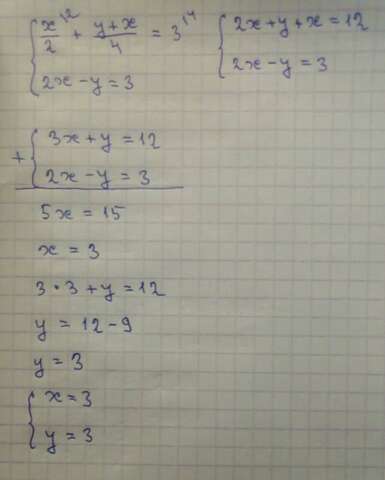 { x/2 \2 + (y+x)/4 = 3 \4 { 2x+y+x=12
{ 2x-y=3 { 2x-y=3
+ { 3x+y=12
{ 2x-y=3
5x=15
x=3
3·3+y=12
y=12-9
y=3
{ x=3
{ y=3